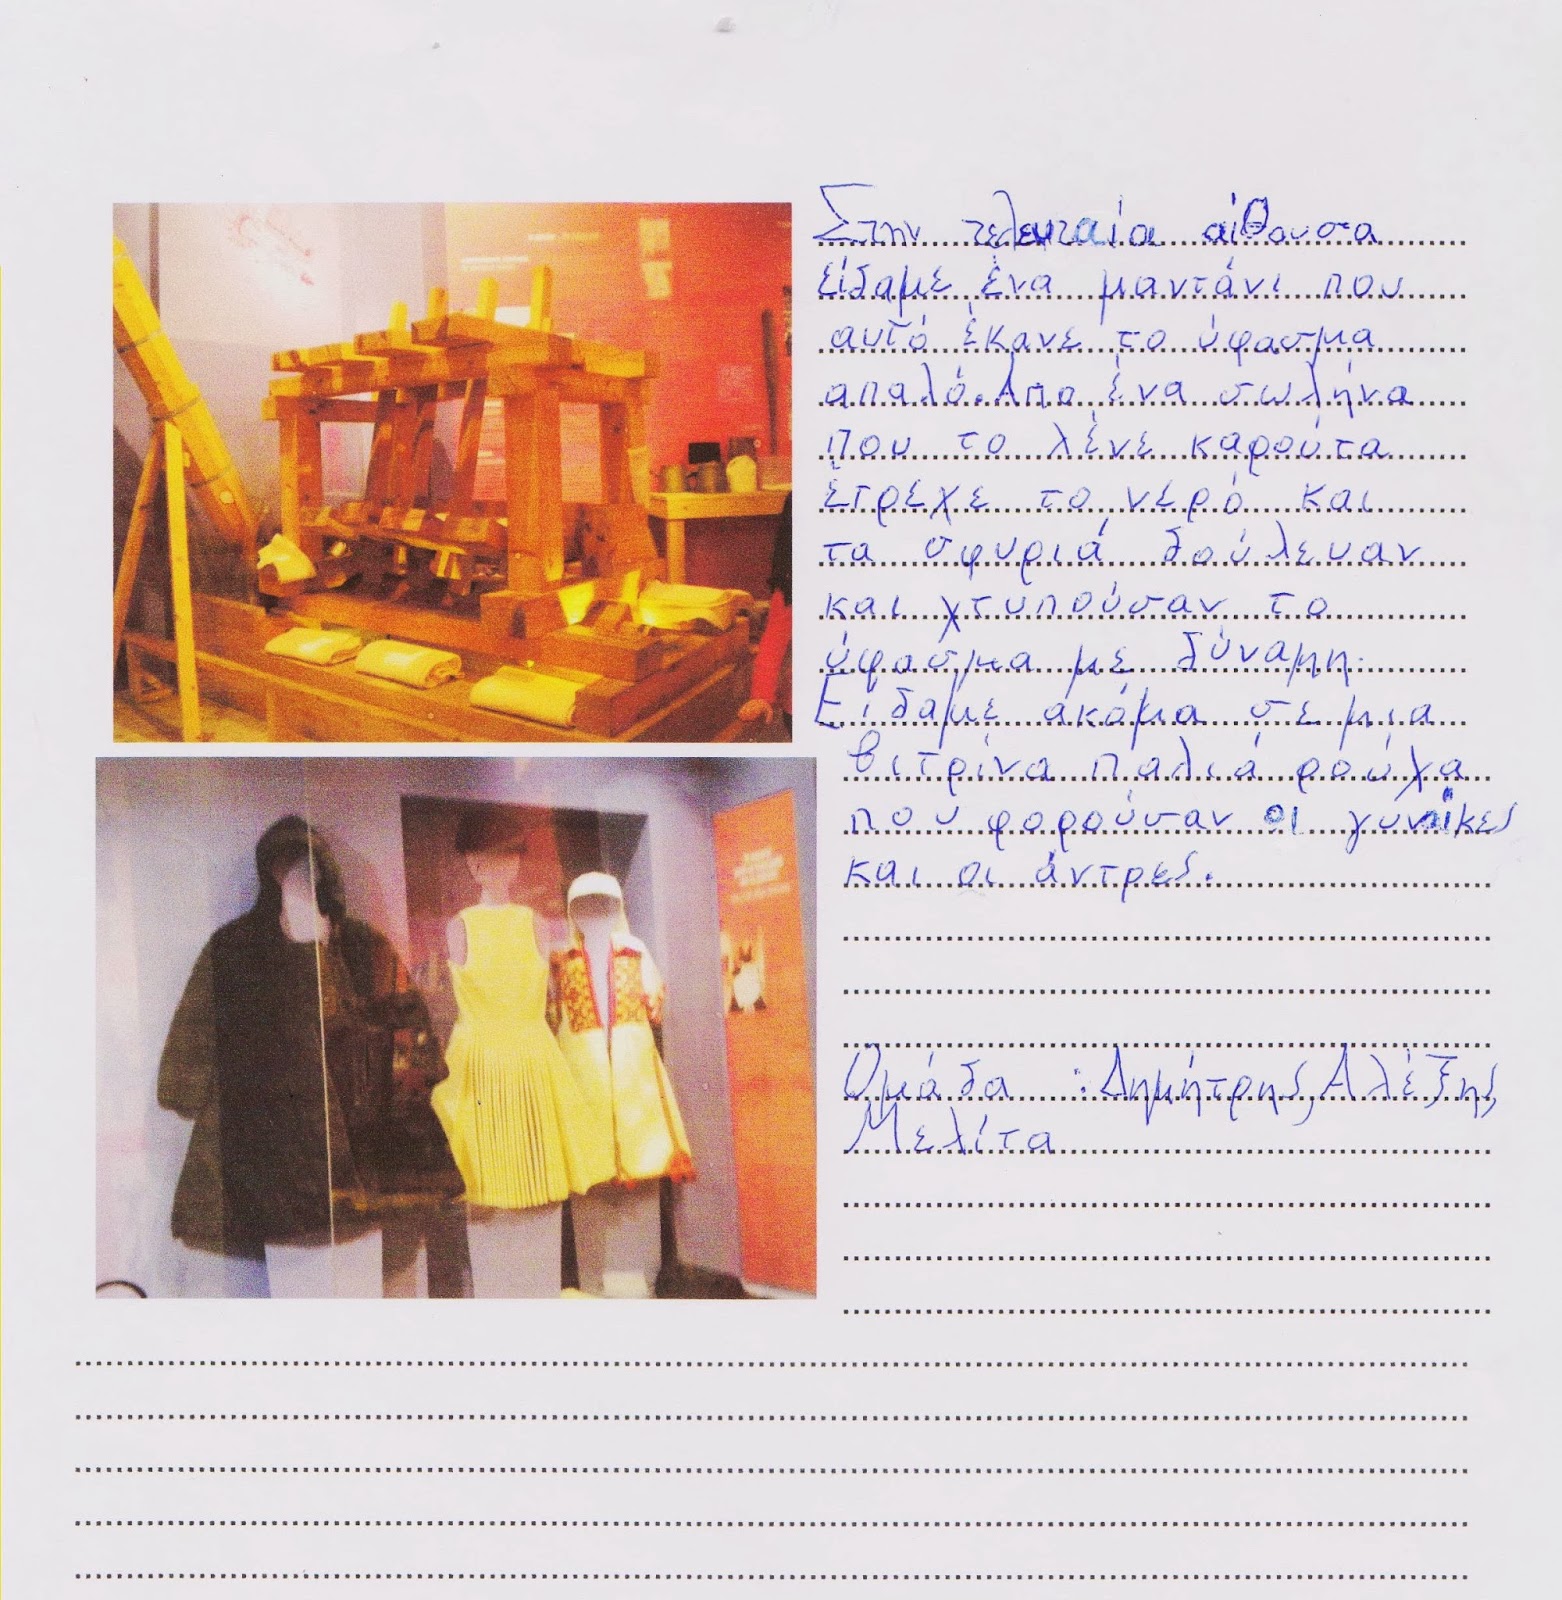 Στην τελευταία αίθουσα
είδαμε ένα μαντάνι που
αυτό έκανε το ύφασμα
απαλό. Απο ένα σωλήνα
που το λένε καρούτα
έτρεχε το νερό και
τα σφυριά δούλευαν
και χτυπούσαν το
ύφασμα με δύναμη.
Είδαμε ακόμα σε μια
βιτρίνα παλιά ρούχα
που φορούσαν οι γυναίκες
και οι άντρες.
Ομάδα : Δημήτρης, Αλέξης,
Μελίτα